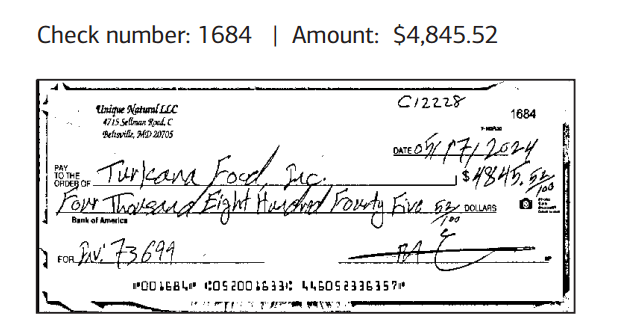 Check number: 1684 | Amount: $4,845.52
C12228
Unique Natural LLC
4715 Sellman Road, C
Beltsville, MD 20705
1684
DATE 05/17/2024
PAY TO THE ORDER OF Turkana Food, Inc. $4845.52/100
Four Thousand Eight Hundred Fourty Five 52/100 DOLLARS
Bank of America
FOR Inv: 73699
⑈001684⑈ ⑆052001633⑆ 446052336357⑈